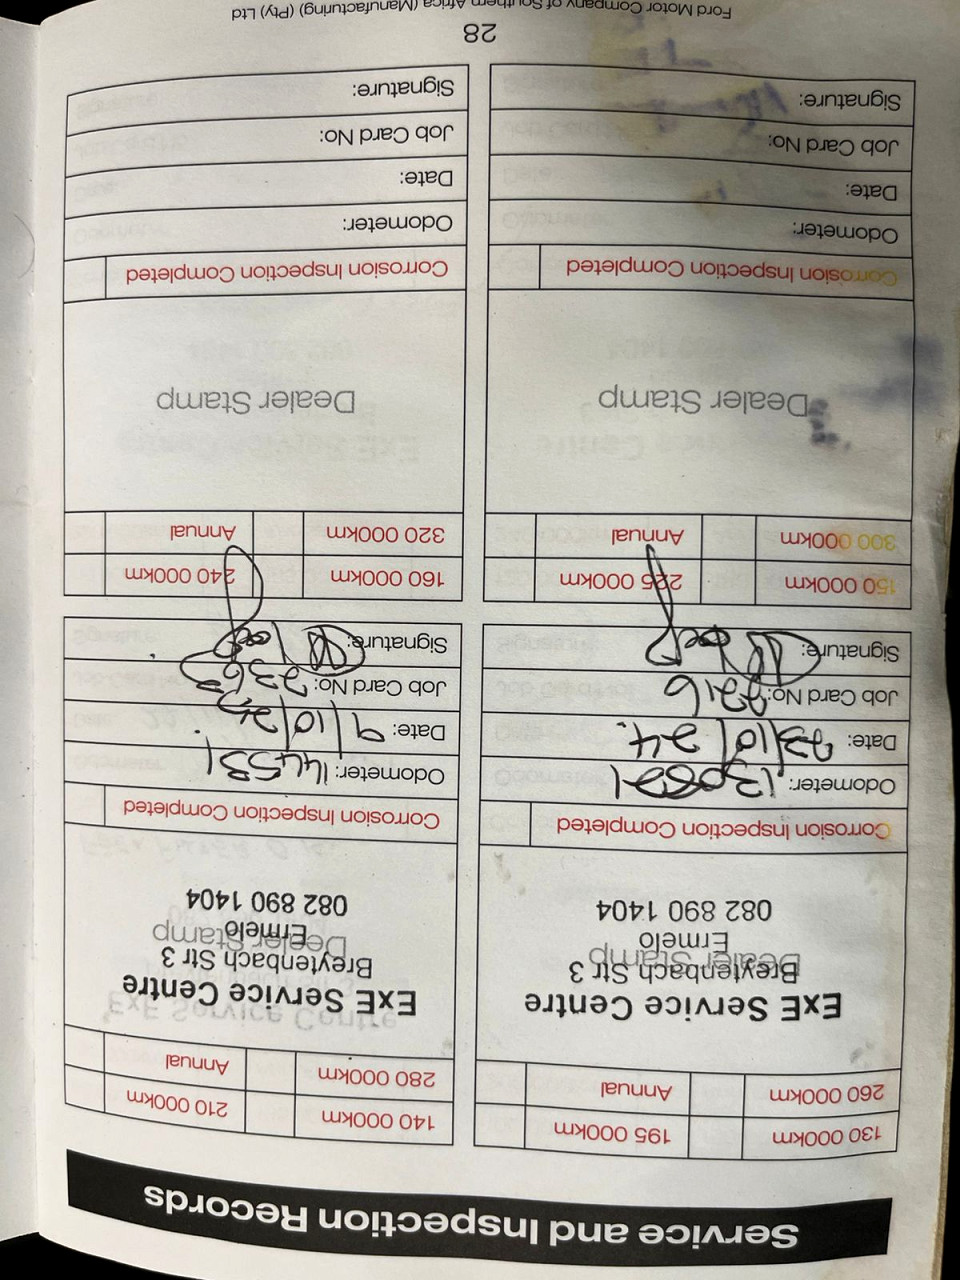 Service and Inspection Records
130 000km 195 000km
260 000km Annual
ExE Service Centre
Dealer Stamp
Breytenbach Str 3
Ermelo
082 890 1404
Corrosion Inspection Completed
Odometer: 130821
Date: 23/10/24.
Job Card No: 2216
Signature:
140 000km 210 000km
280 000km Annual
ExE Service Centre
Dealer Stamp
Breytenbach Str 3
Ermelo
082 890 1404
Corrosion Inspection Completed
Odometer: 144531
Date: 9/10/
Job Card No: 2363
Signature:
150 000km 225 000km
300 000km Annual
Dealer Stamp
Corrosion Inspection Completed
Odometer:
Date:
Job Card No:
Signature:
160 000km 240 000km
320 000km Annual
Dealer Stamp
Corrosion Inspection Completed
Odometer:
Date:
Job Card No:
Signature:
28
Ford Motor Company of Southern Africa (Manufacturing) (Pty) Ltd